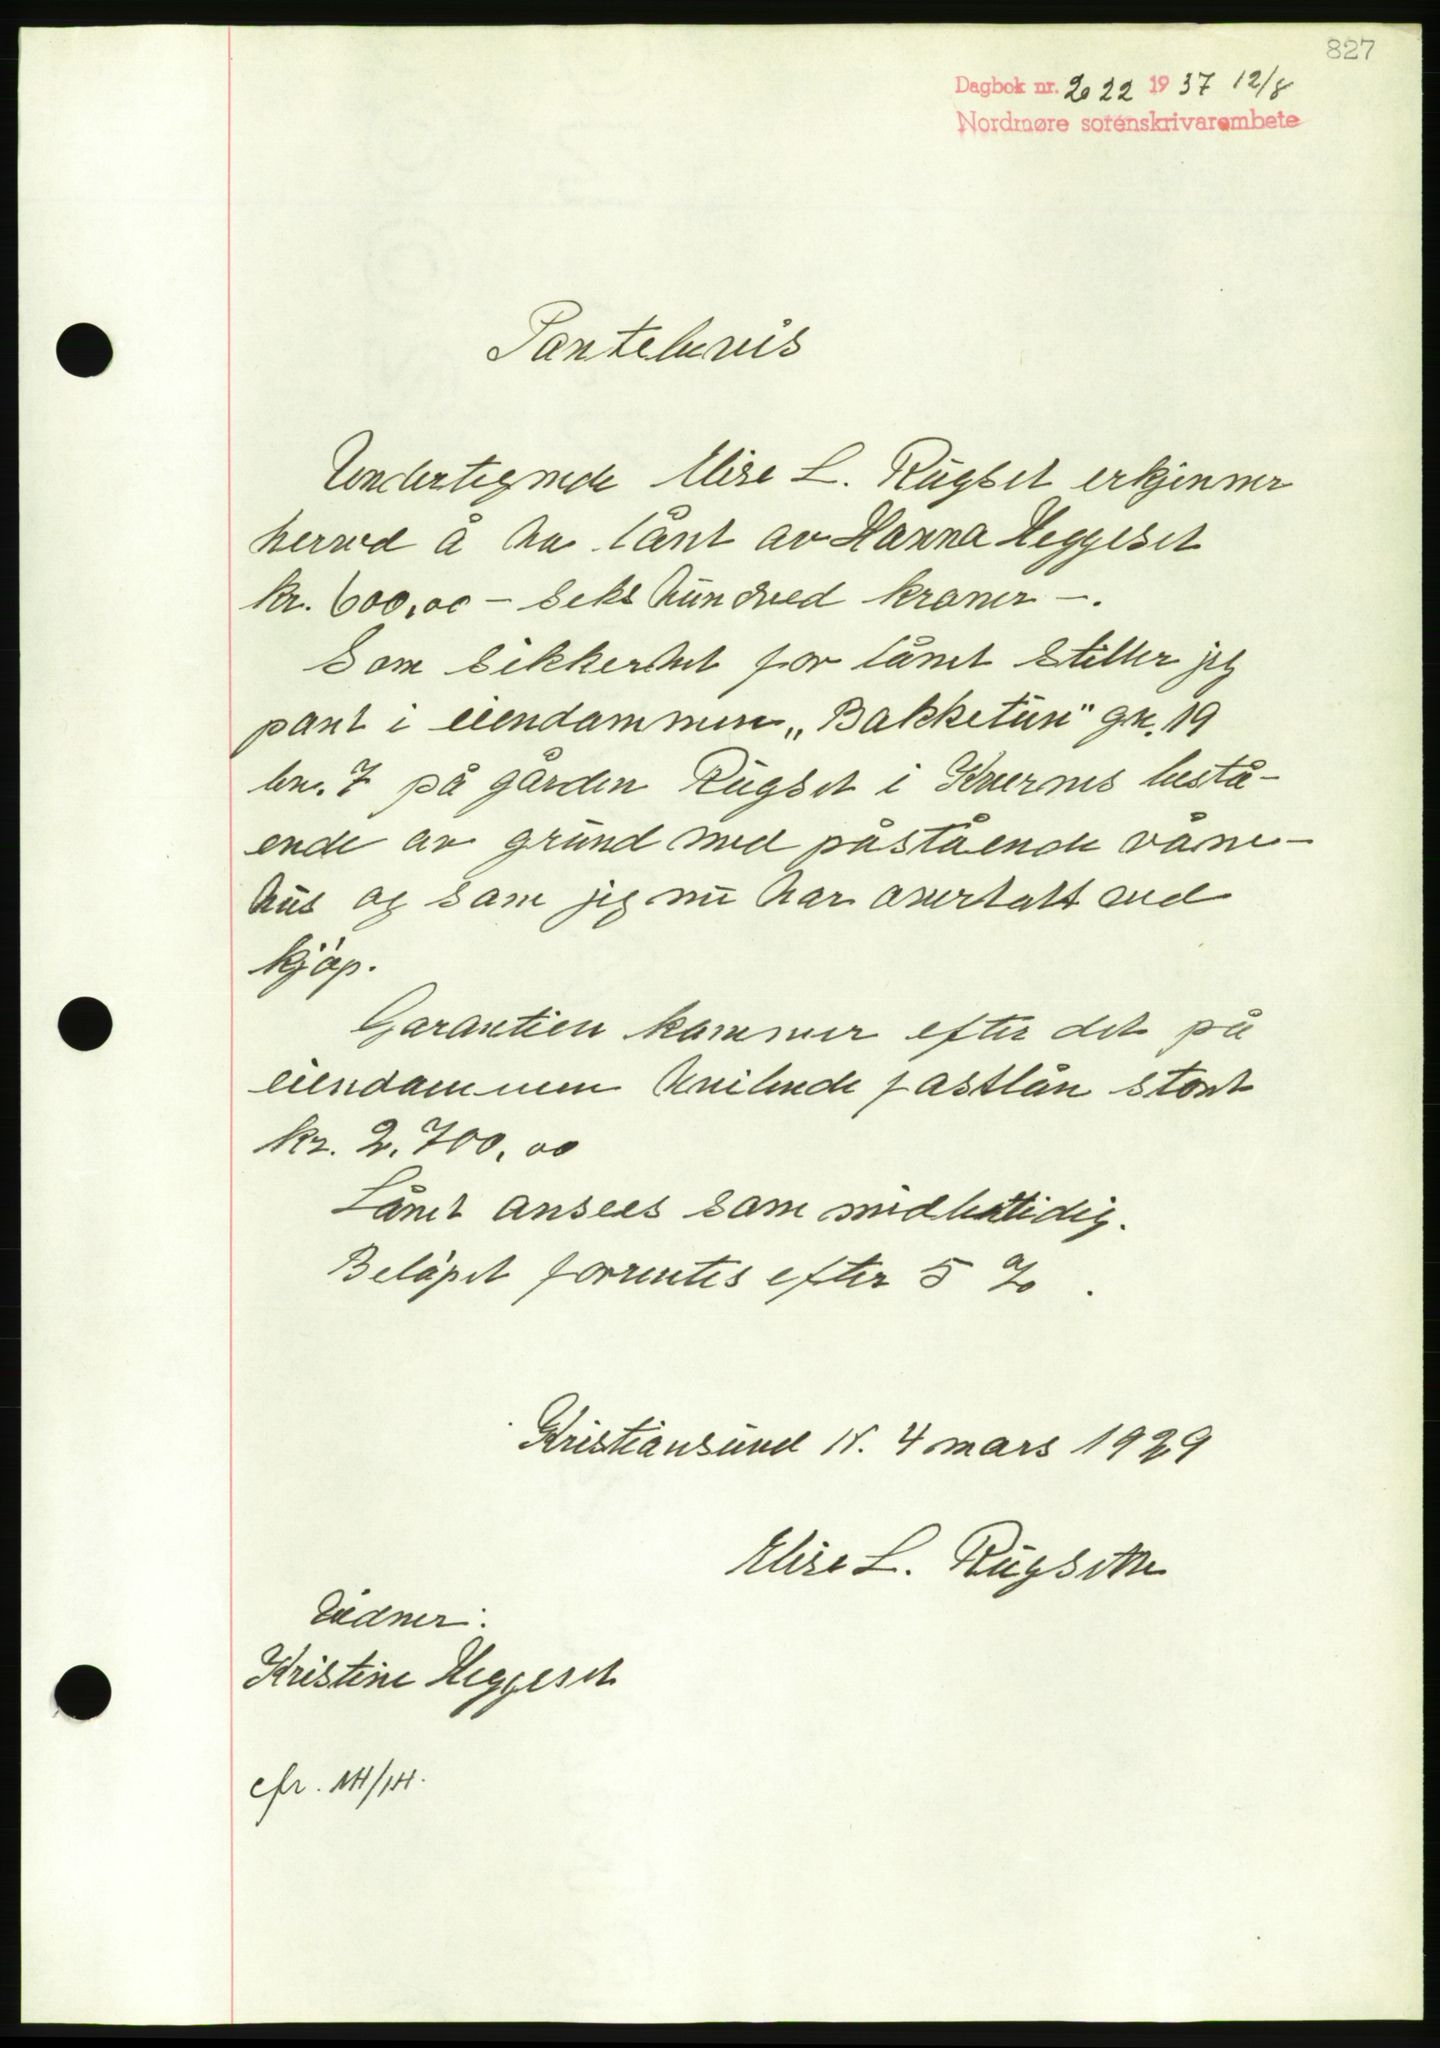 827
Dagbok nr. 2022 1937 12/8
Nordmøre sorenskrivarembete
Pantebevis
Undertegnede Elise L. Rugset erkjenner
herved å ha lånt av Hanna Heggeset
kr. 600,00 – seks hundred kroner –.
Som sikkerhet for lånet stiller jeg
pant i eiendommen „Bakketun" gn. 19
bn. 7 på gården Rugset i Kvernes bestå-
ende av grund med påstående våne-
hus og som jeg nu har overtatt ved
kjøp.
Garantien kommer efter det på
eiendommen hvilende fastlån stort
kr. 2.700,00
Lånet ansees som midlertidig.
Beløpet forrentes efter 5 %.
Kristiansund N. 4 mars 1929
Elise L. Rugseth
Vidner:
Kristine Heggeset
cfr.